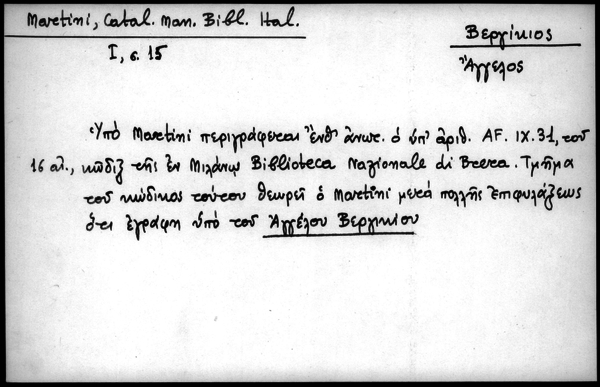 Martini, Catal. Man. Bibl. Ital.
I, σ. 15
Βεργίκιος
Ἄγγελος
Ὑπὸ Martini περιγράφεται ἔνθ' ἀνωτ. ὁ ὑπ' ἀριθ. AF. IX. 31, τοῦ
16 αἰ., κῶδιξ τῆς ἐν Μιλάνῳ Biblioteca Nazionale di Brera. Τμῆμα
τοῦ κώδικος τούτου θεωρεῖ ὁ Martini μετὰ πολλῆς ἐπιφυλάξεως
ὅτι ἐγράφη ὑπὸ τοῦ Ἀγγέλου Βεργικίου